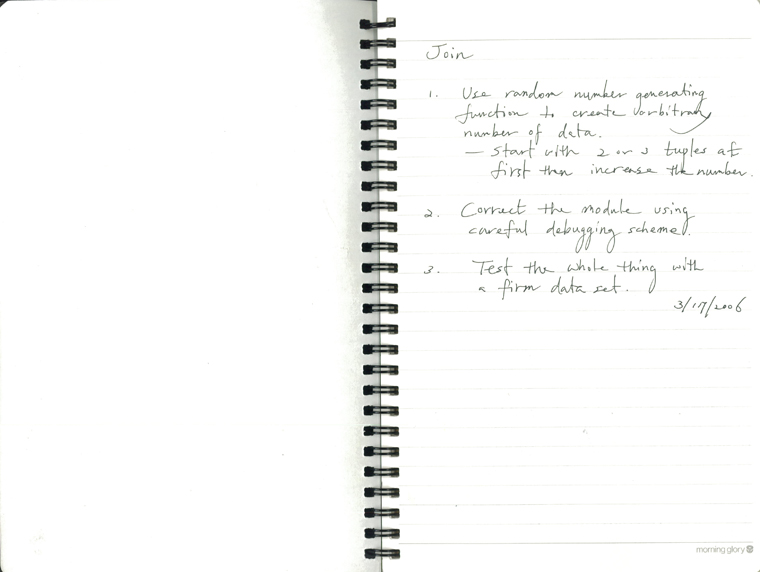 Join
1. Use random number generating
function to create arbitrary
number of data.
— Start with 2 or 3 tuples at
first then increase the number.
2. Correct the module using
careful debugging scheme.
3. Test the whole thing with
a firm data set.
3/17/2006
morning glory